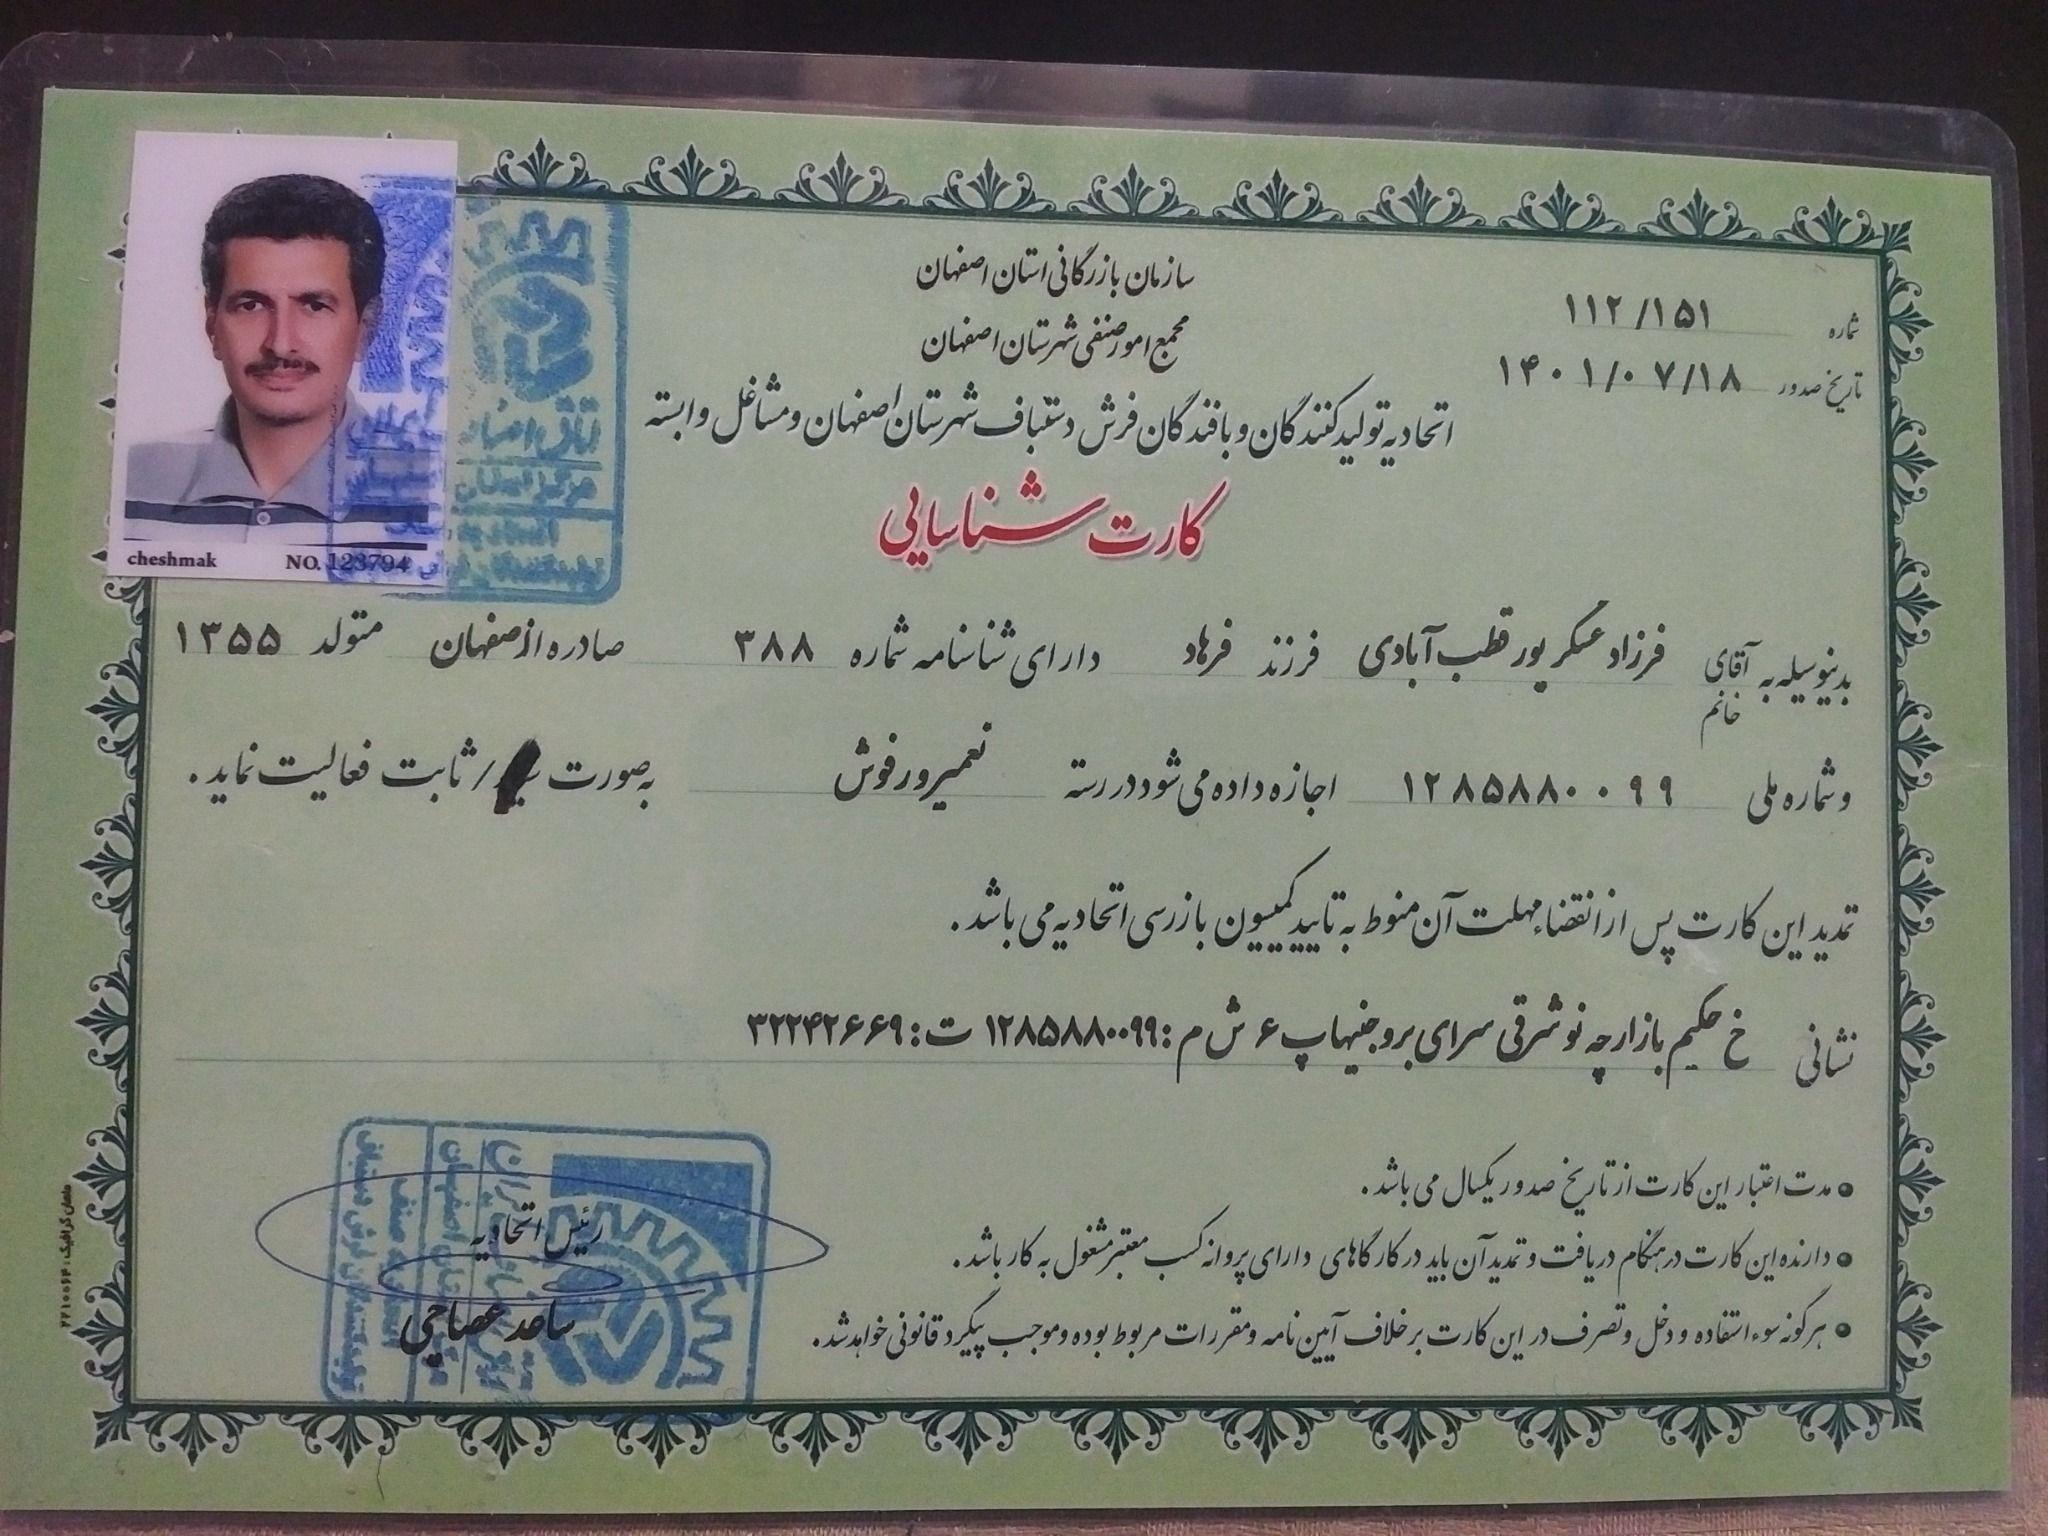 سازمان بازرگانی استان اصفهان
مجمع امور صنفی شهرستان اصفهان
اتحادیه تولیدکنندگان و بافندگان فرش دستباف شهرستان اصفهان و مشاغل وابسته
کارت شناسایی
شماره ۱۱۲/۱۵۱
تاریخ صدور ۱۴۰۱/۰۷/۱۸
cheshmak NO. 123794
بدینوسیله به آقای فرزاد عسگر پور قطب آبادی فرزند فرهاد دارای شناسنامه شماره ۳۸۸ صادره از اصفهان متولد ۱۳۵۵
خانم
و شماره ملی ۱۲۸۵۸۸۰۰۹۹ اجازه داده می شود در رسته تعمیر و رفوش به صورت / ثابت فعالیت نماید.
تمدید این کارت پس از انقضاء مهلت آن منوط به تایید کمیسیون بازرسی اتحادیه می باشد.
نشانی خ حکیم بازارچه نو شرقی سرای بروجنیها پ ۶ ش م : ۱۲۸۵۸۸۰۰۹۹ ت : ۳۲۲۴۲۶۶۹
● مدت اعتبار این کارت از تاریخ صدور یکسال می باشد.
● دارنده این کارت در هنگام دریافت و تمدید آن باید در کارگاهای دارای پروانه کسب معتبر مشغول به کار باشد.
● هرگونه سوء استفاده و دخل و تصرف در این کارت بر خلاف آیین نامه و مقررات مربوط بوده و موجب پیگرد قانونی خواهد شد.
رئیس اتحادیه
ساعد عصاچی